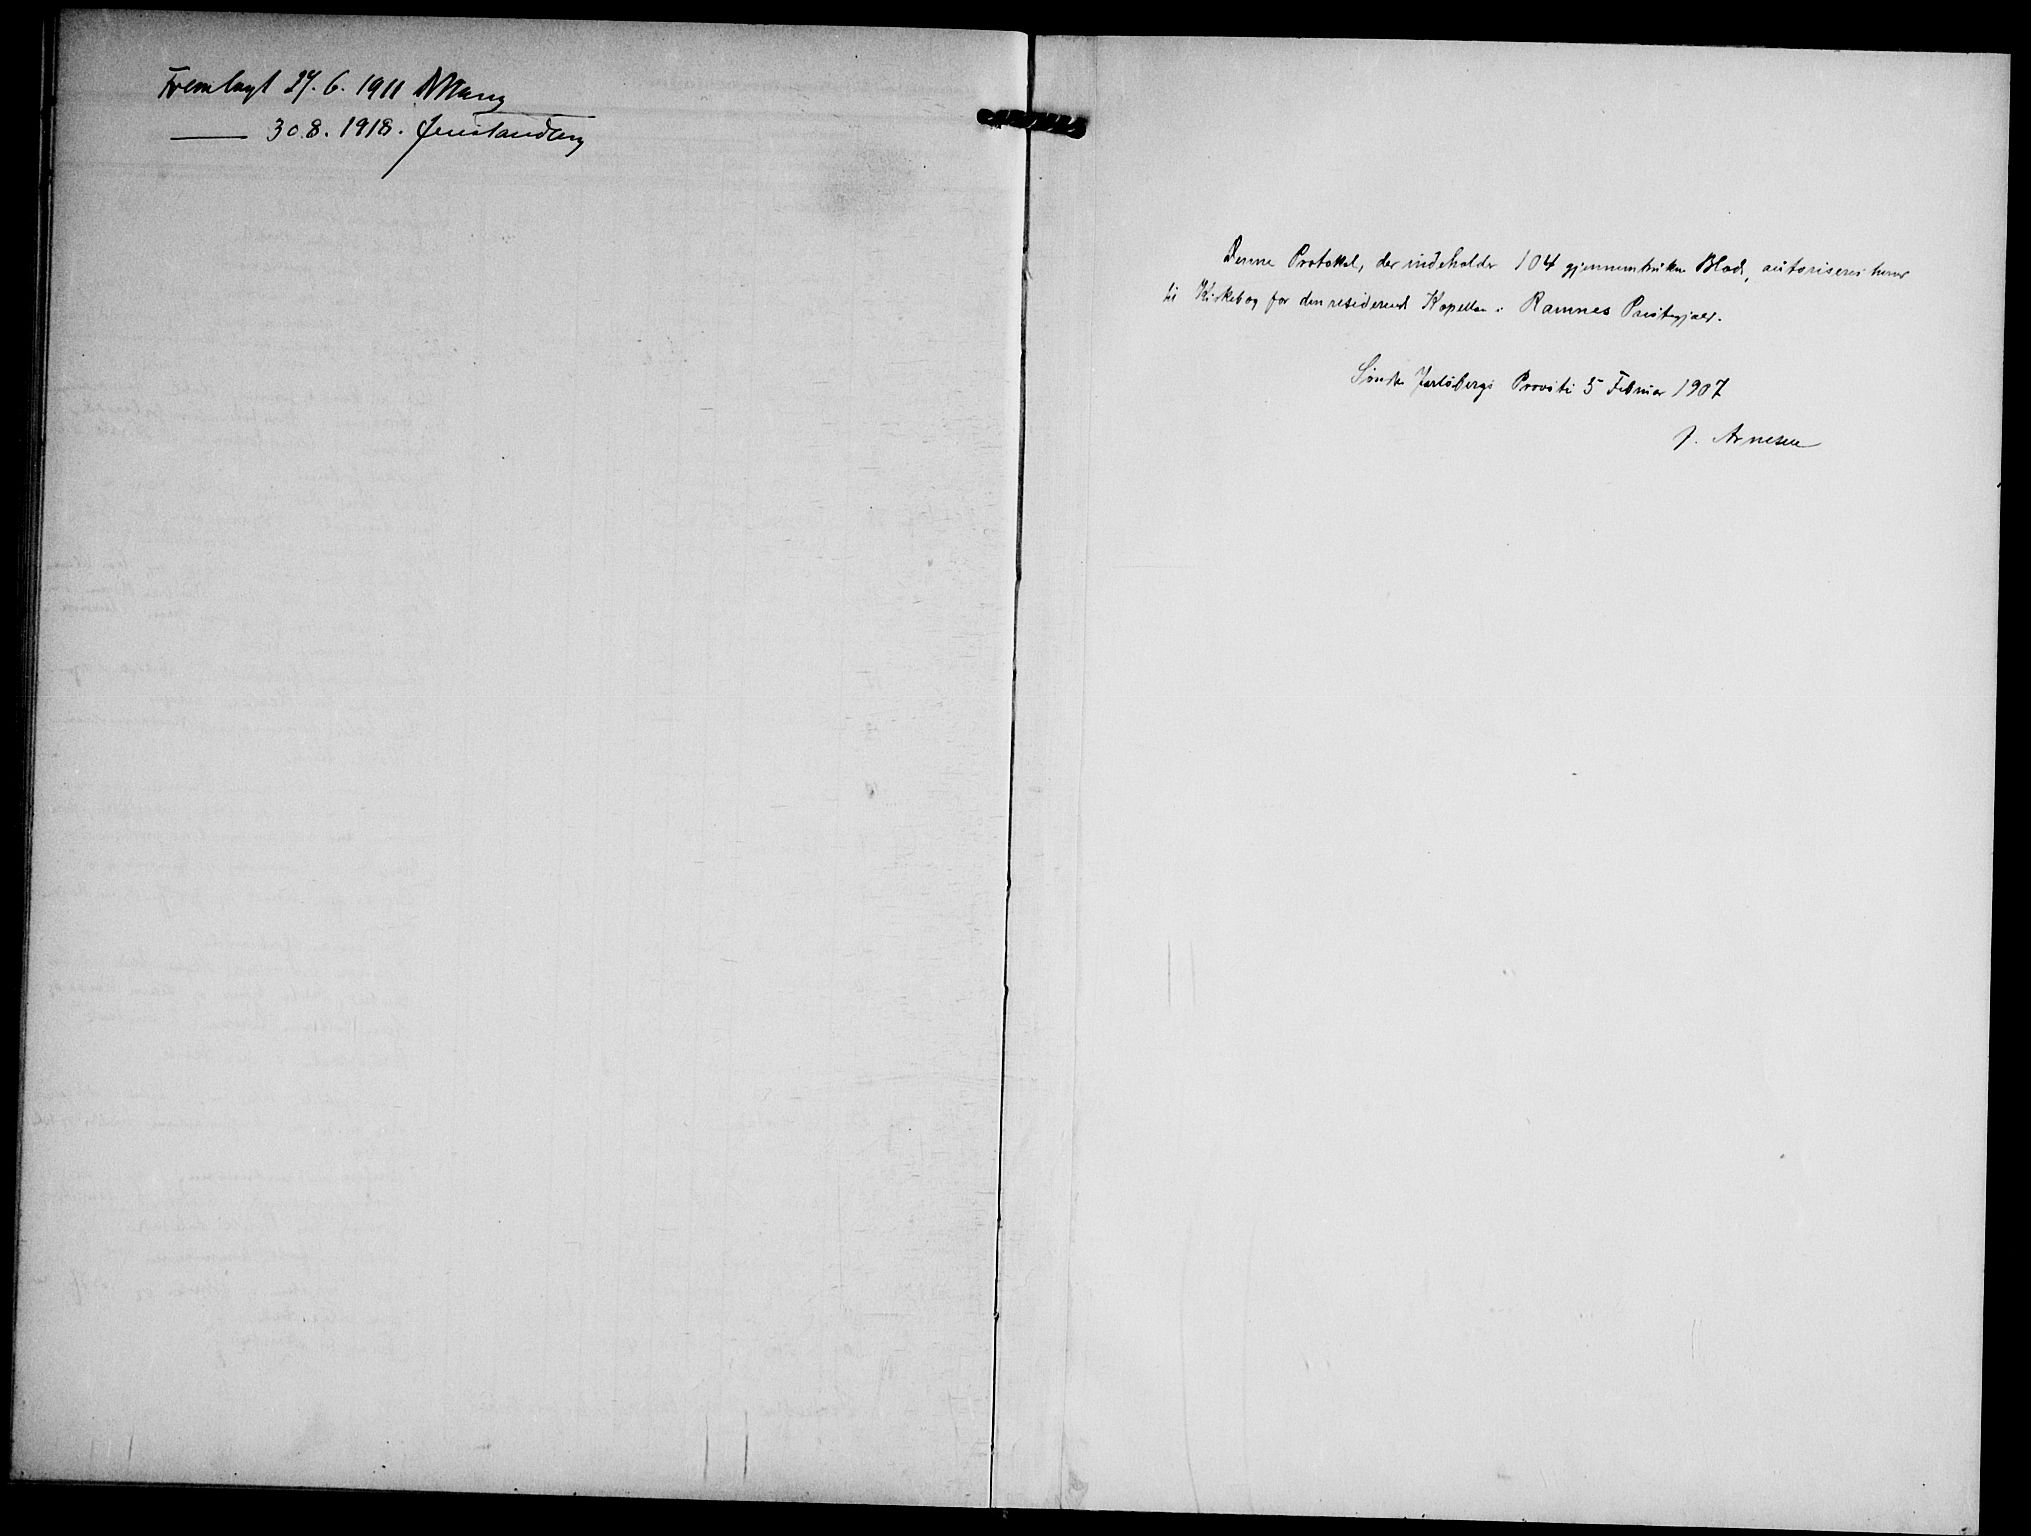 Fremlagt 27. 6. 1911
— 30. 8. 1918. Jens Tandberg
Denne Protokol, der indeholder 104 gjennemtrukne Blade, autoriseres herved
til Kirkebog for den residerende Kapellan i Ramnes Præstegjæld.
Søndre Jarlsbergs Provsti 5 Februar 1907
J. Arnesen